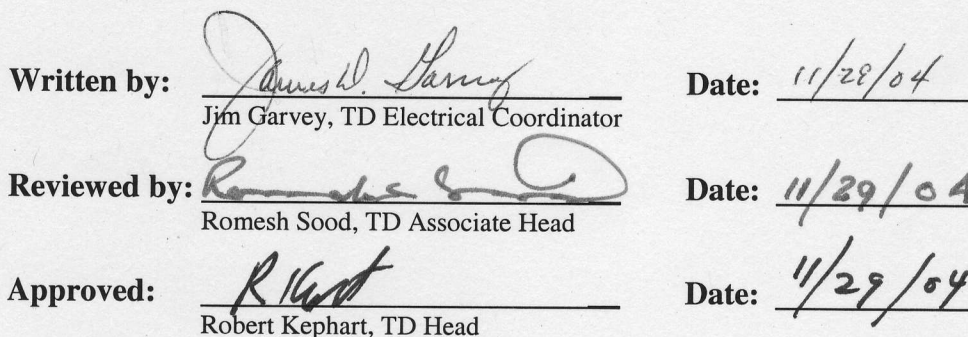 Written by: James D. Garvey Date: 11/29/04
Jim Garvey, TD Electrical Coordinator
Reviewed by: Romesh Sood Date: 11/29/04
Romesh Sood, TD Associate Head
Approved: R Kephart Date: 11/29/04
Robert Kephart, TD Head